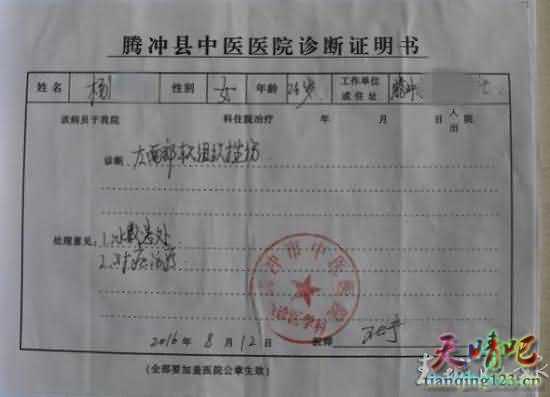 腾冲县中医医院诊断证明书
姓名 杨 性别 女 年龄 26岁 工作单位或住址 腾冲
该病员于我院 科住院治疗 年 月 日 入出 院
诊断: 左面部软组织挫伤
处理意见: 1.冰敷患处
2.对症治疗
冲市中医医院
2016年8月12日 医师
(全部要加盖医院公章生效)
天晴吧
tianqing123.cn